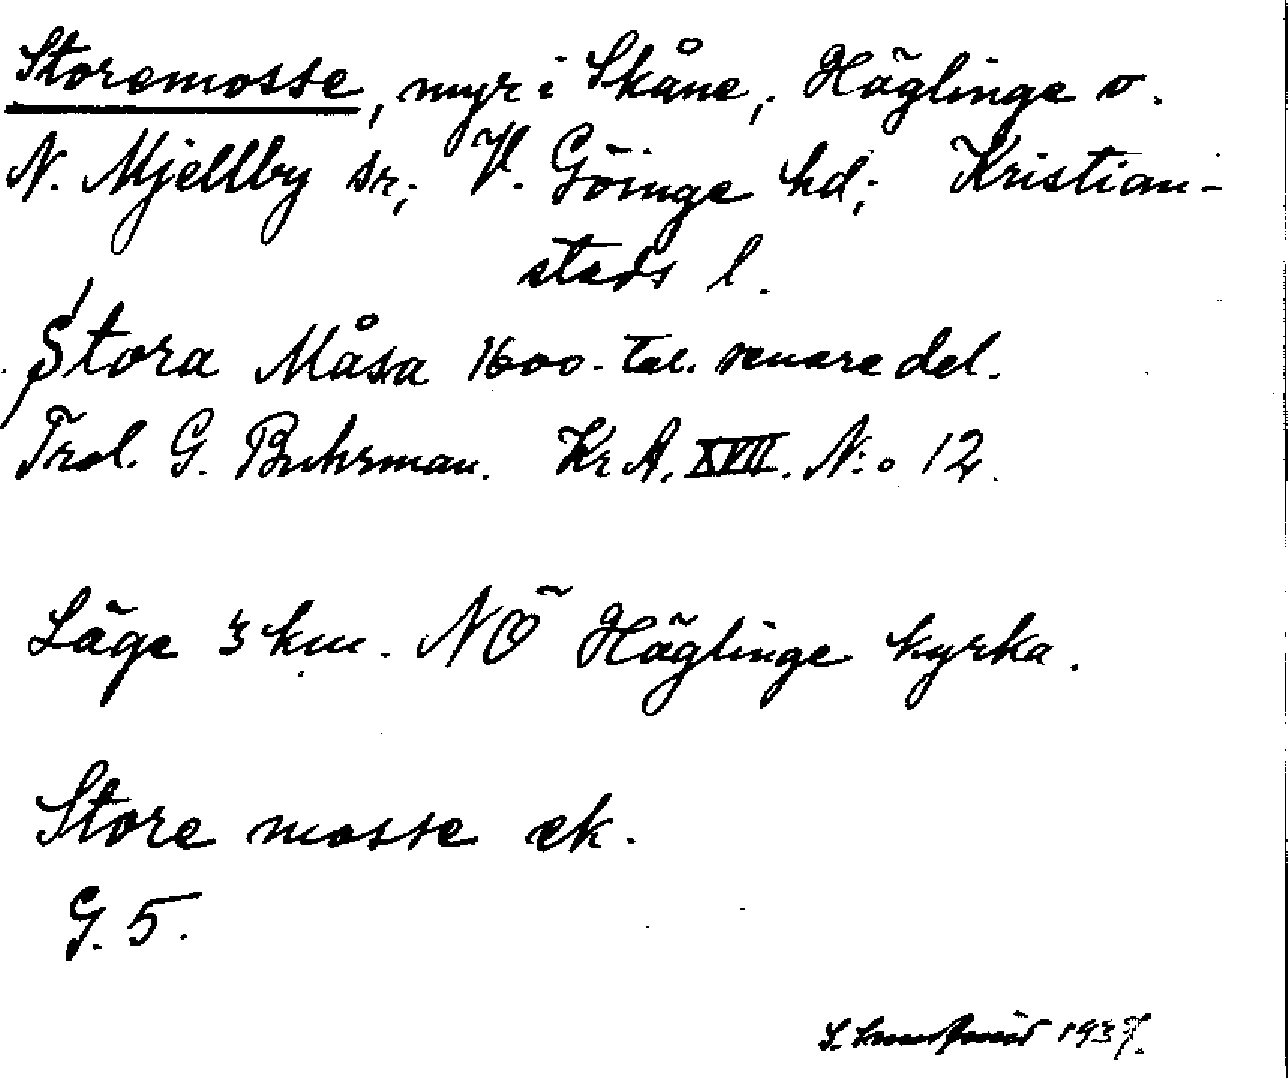 Storemosse, myr i Skåne, Häglinge o.
N. Mjellby sr; V. Göinge hd; Kristian-
stads l.
Stora Måsa 1600-tal. senare del.
Trol. G. Buhrman. Kr A. XVII. N:o 12.
Läge 3 km. NÖ Häglinge kyrka.
Store mosse ek.
G. 5.
S. 1937.